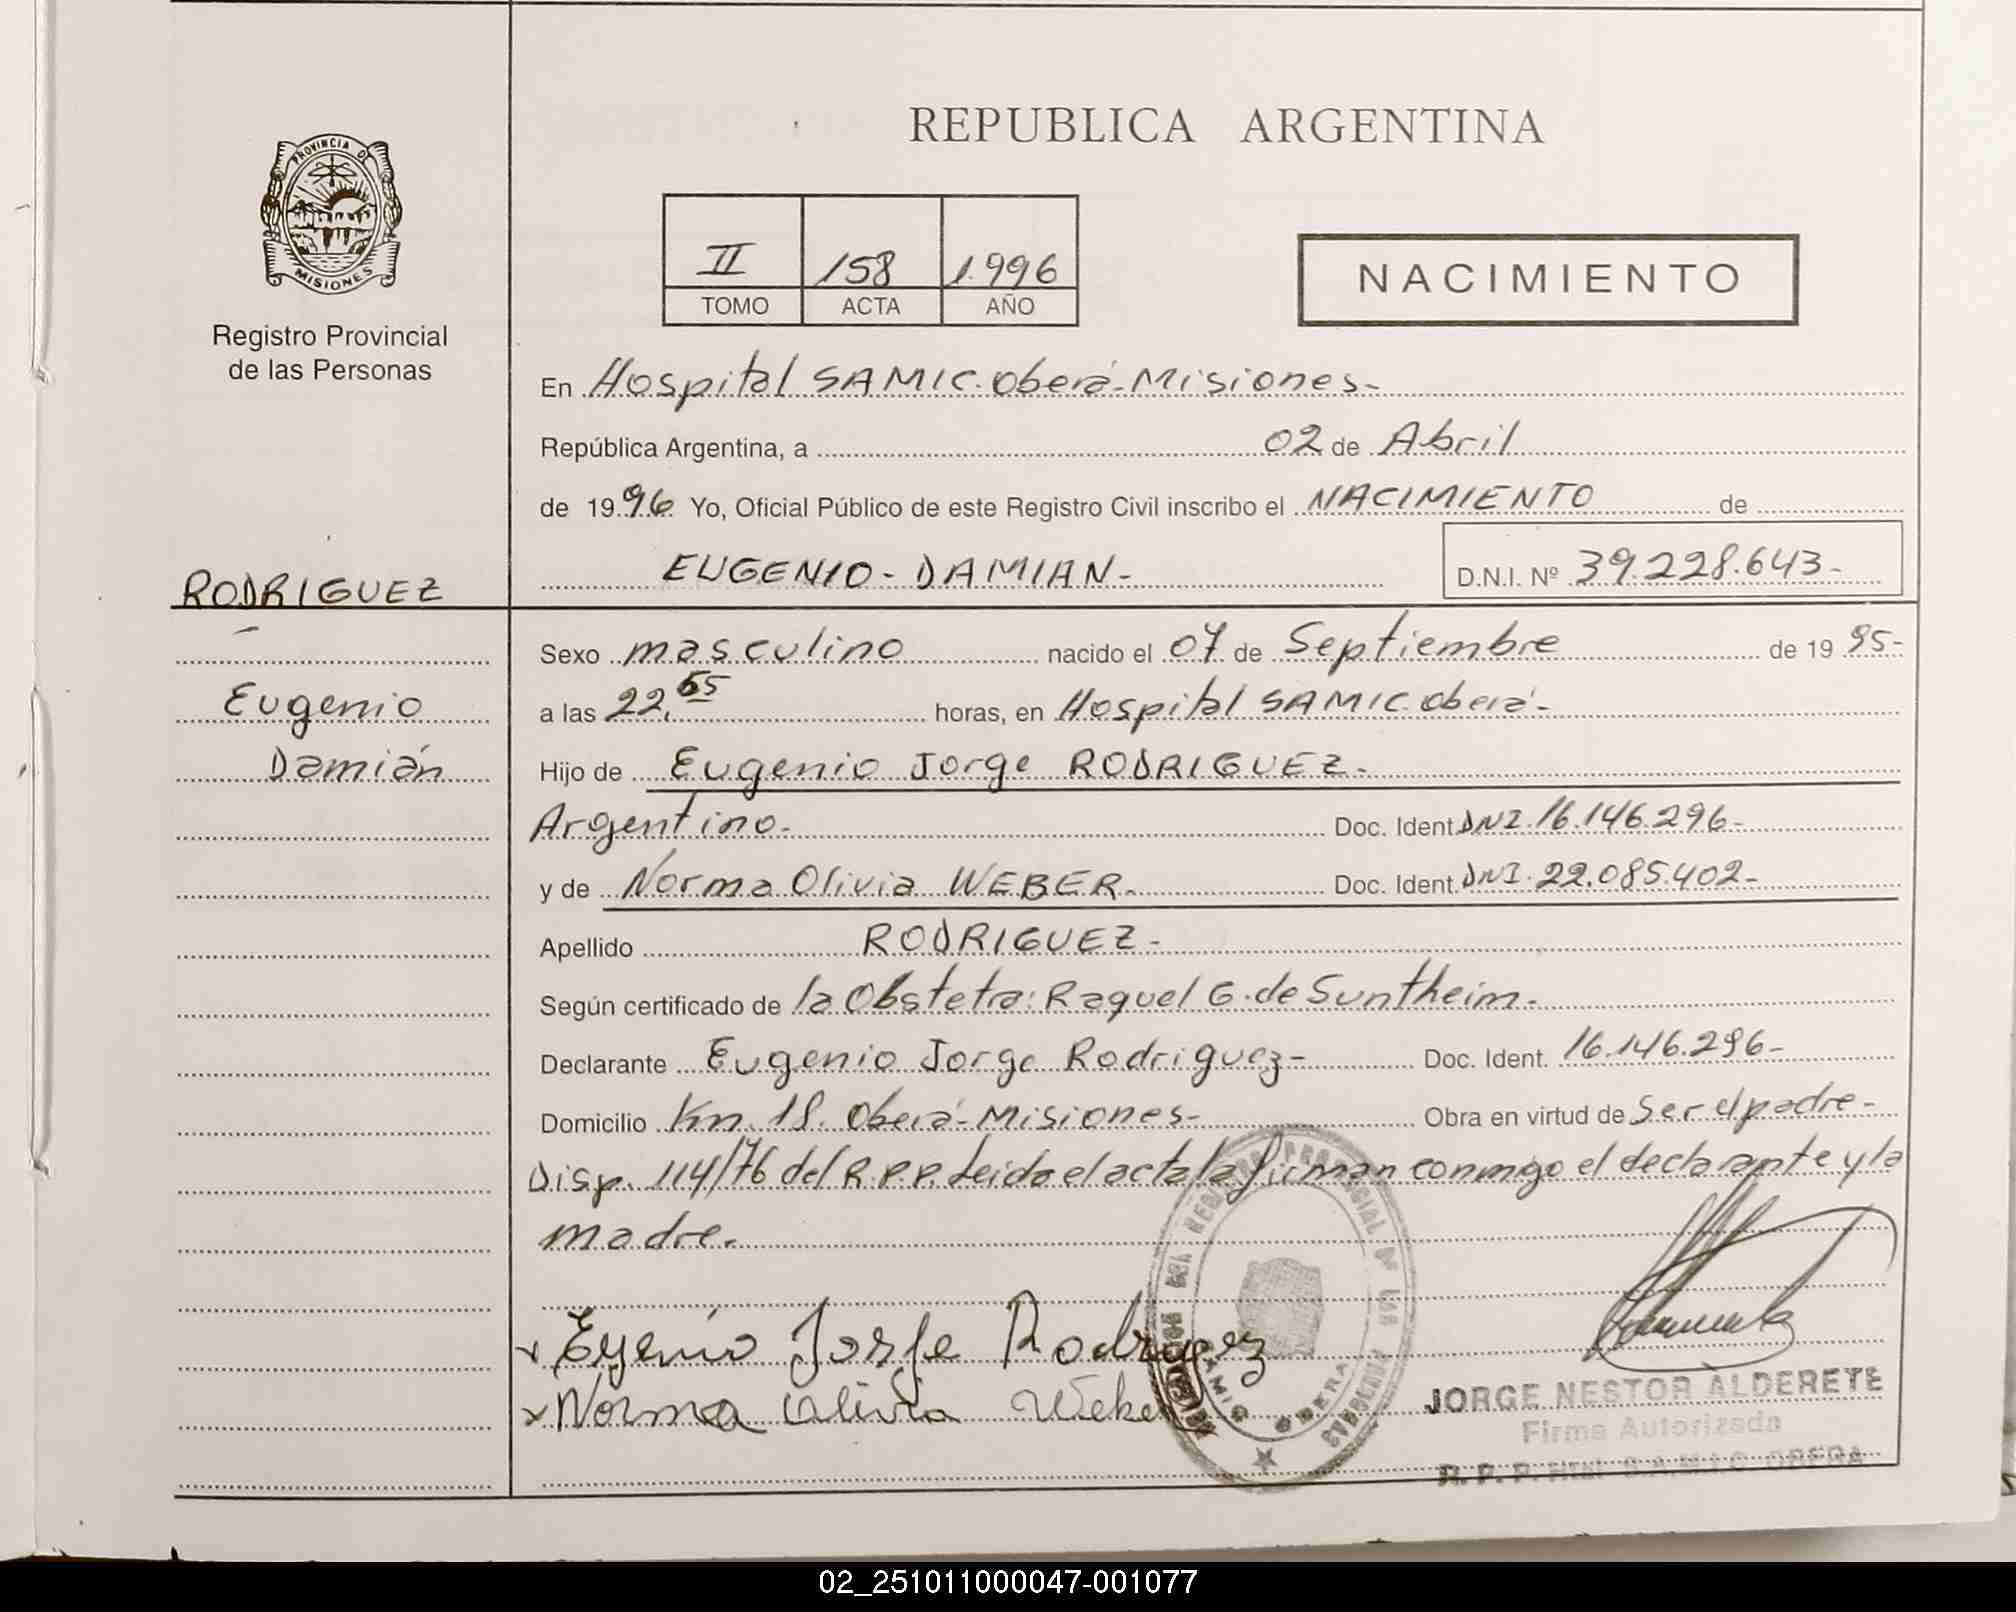 PROVINCIA DE
MISIONES
Registro Provincial
de las Personas
RODRIGUEZ
Eugenio
Damián
REPUBLICA ARGENTINA
II 158 1.996
TOMO ACTA AÑO
NACIMIENTO
En Hospital SAMIC. Oberá-Misiones-
República Argentina, a 02 de Abril
de 1996 Yo, Oficial Público de este Registro Civil inscribo el NACIMIENTO de
EUGENIO - DAMIAN- D.N.I. Nº 39.228.643-
Sexo masculino nacido el 07 de Septiembre de 1995-
a las 22,55 horas, en Hospital SAMIC. Oberá-
Hijo de Eugenio Jorge RODRIGUEZ-
Argentino- Doc. Ident DNI. 16.146.296-
y de Norma Olivia WEBER- Doc. Ident DNI. 22.085.402-
Apellido RODRIGUEZ-
Según certificado de la Obstetra: Raquel G. de Suntheim.
Declarante Eugenio Jorge Rodriguez- Doc. Ident. 16.146.296-
Domicilio Km. 18. Oberá-Misiones- Obra en virtud de Ser el padre-
Disp. 114/76 del R.P.P. Leida el acta la firman conmigo el declarante y la
madre.
Eugenio Jorge Rodriguez
Norma Olivia Weber
JORGE NESTOR ALDERETE
Firma Autorizada
R.P.P. S.A.M.I.C. OBERA
02_251011000047-001077